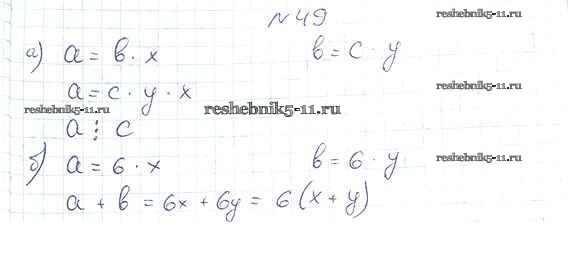 №49
reshebnik5-11.ru
а) a = b · x b = c · y
a = c · y · x
reshebnik5-11.ru
reshebnik5-11.ru reshebnik5-11.ru
a ⋮ c
б) a = 6 · x b = 6 · y
reshebnik5-11.ru
a + b = 6x + 6y = 6(x + y)